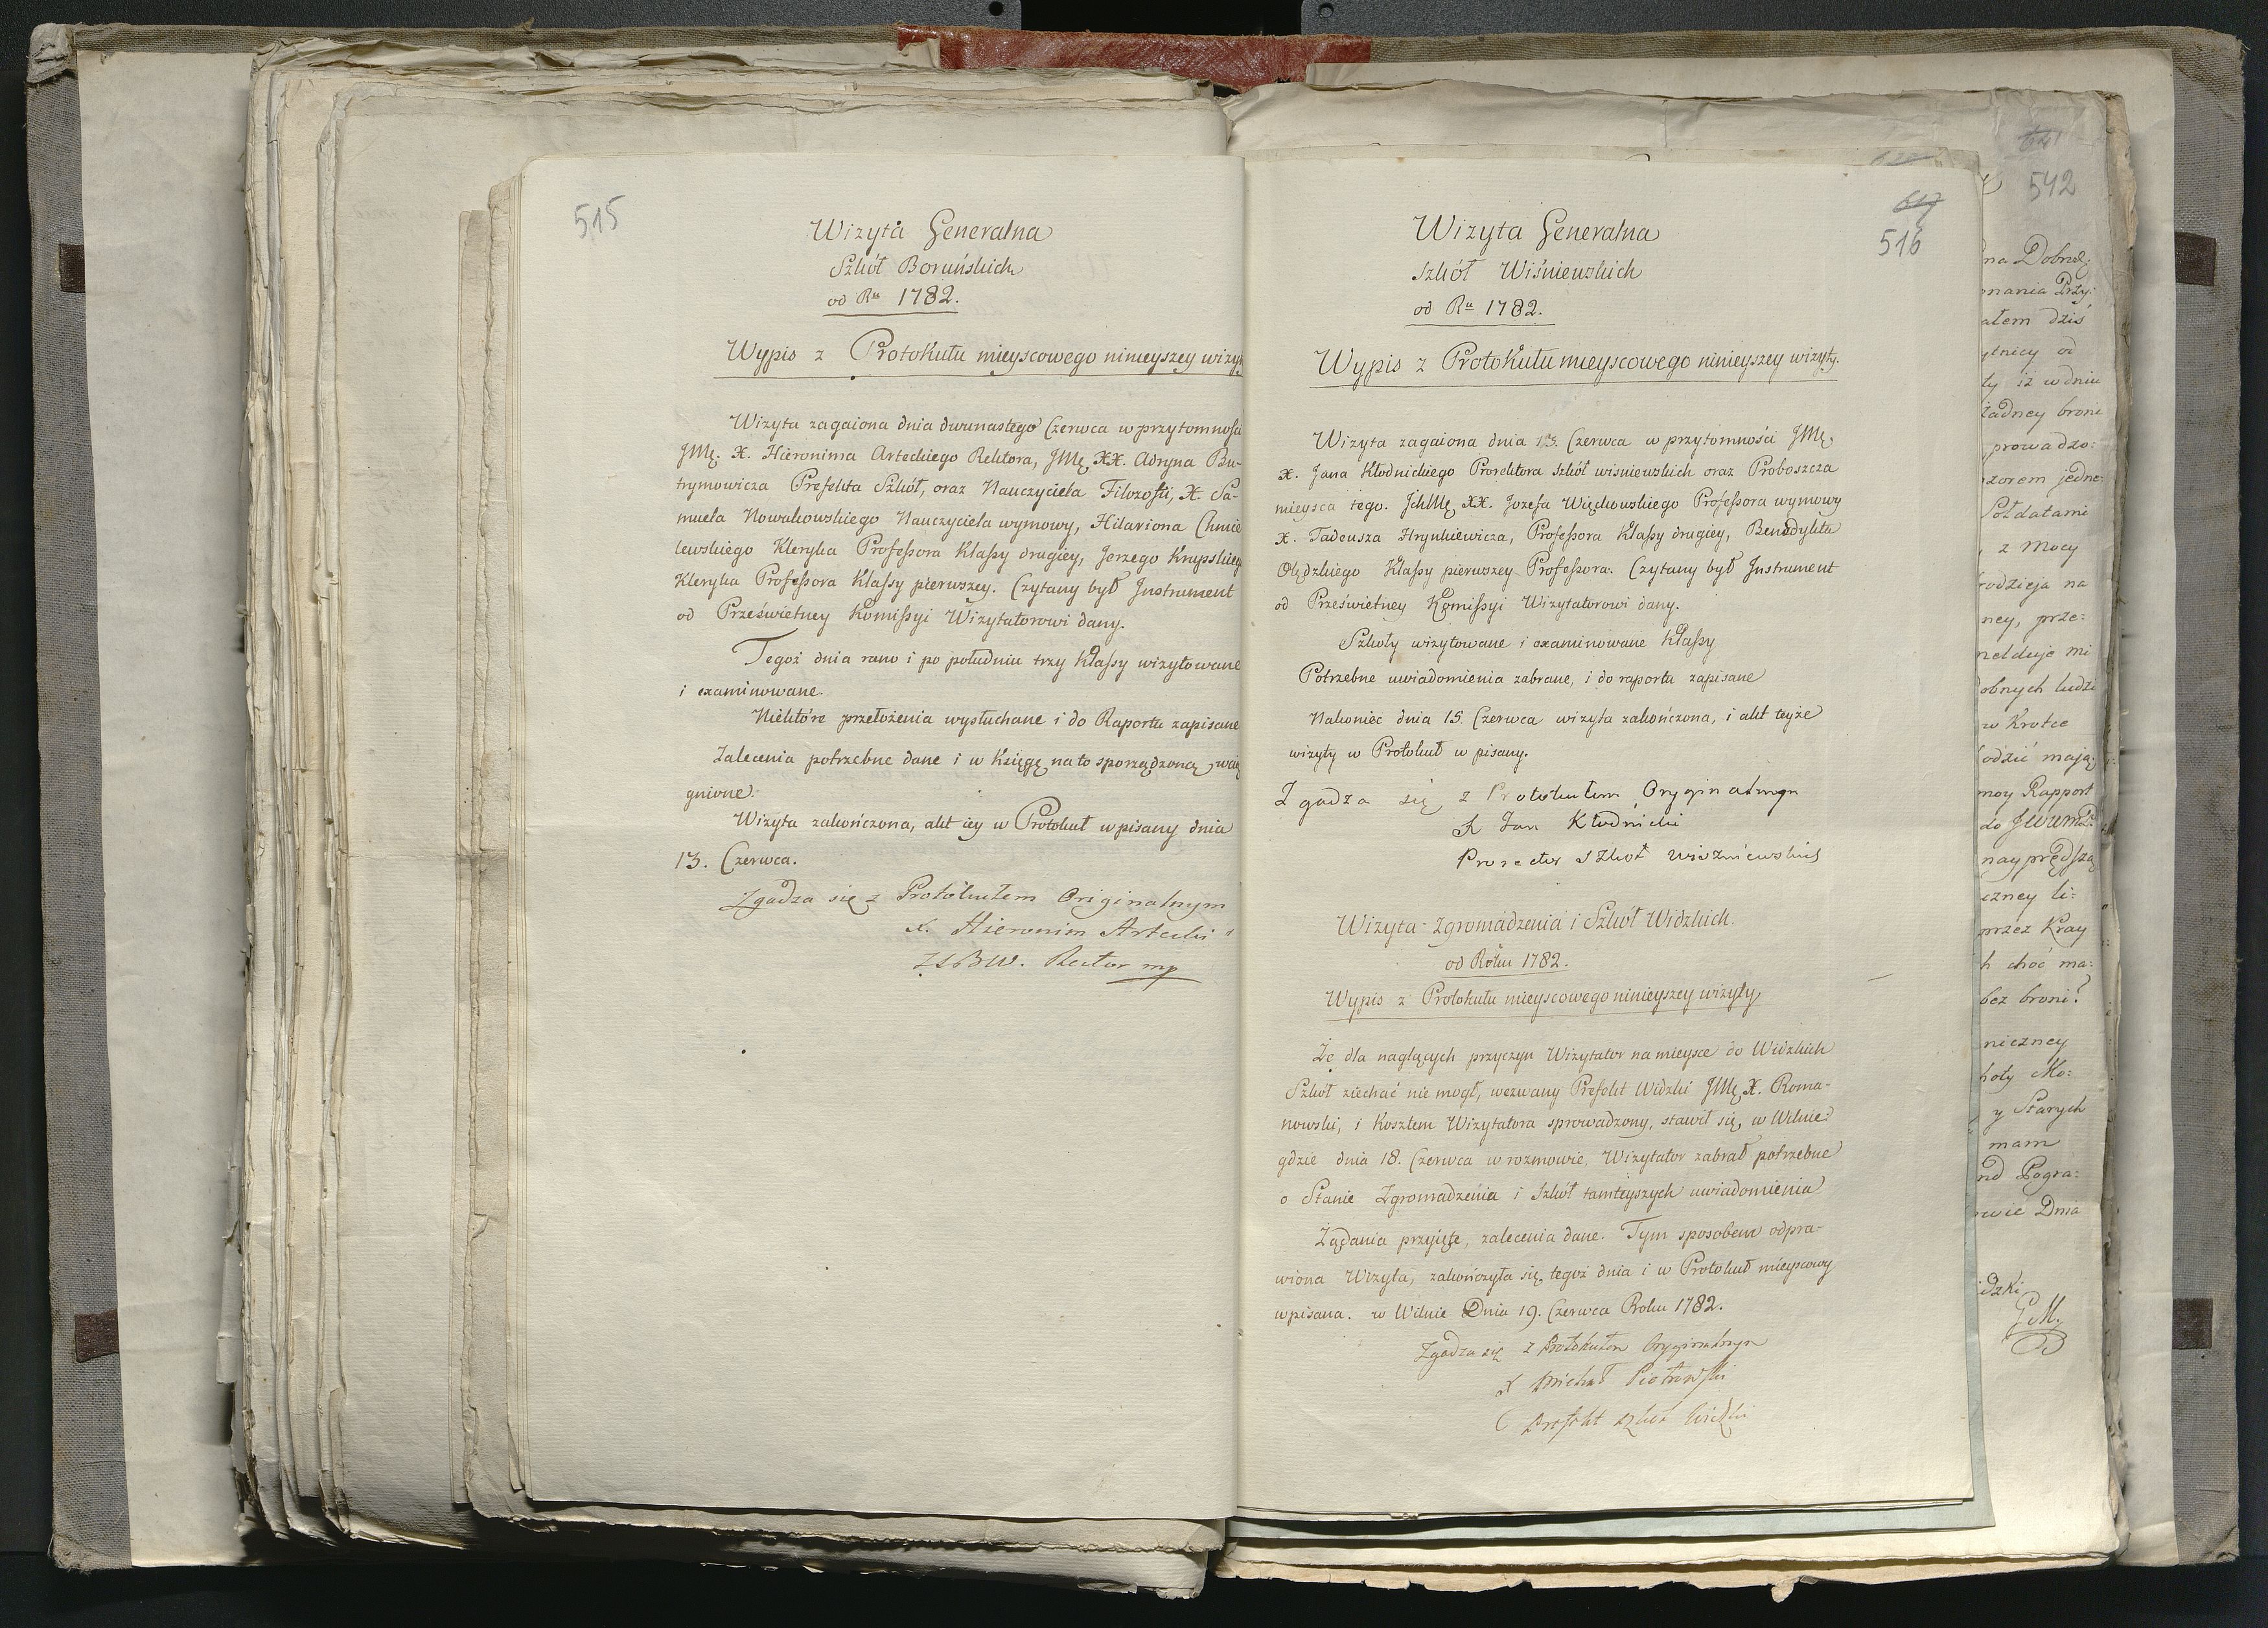 515
Wizyta Generalna
Szkół Boruńskich
od Ru 1782.
Wypis z Protokułu mieyscowego ninieyszey wizyty
Wizyta zagaiona dnia dwunastego Czerwca w przytomności
JMę. X. Hieronima Arteckiego Rektora, JMę XX. Adryna Bu-
trymowicza Prefekta Szkół, oraz Nauczyciela Filozofii, X. Sa-
muela Nowakowskiego Nauczyciela wymowy, Hilariona Chmie
lewskiego Kleryka Professora Klassy drugiey, Jerzego Krupskieg
Kleryka Professora Klassy pierwszey. Czytany był Instrument
od Prześwietney Kommissyi Wizytatorowi dany.
Tegoż dnia rano i po południu trzy Klassy wizytowane
i examinowane.
Niektóre przełożenia wysłuchane i do Raportu zapisane
Zalecenia potrzebne dane i w Księgę na to sporządzoną wcią
gnione.
Wizyta zakończona, akt iey w Protokuł wpisany dnia
13. Czerwca.
Zgadza się z Protokułem Originalnym
X. Hieronim Artecki
ZSBW. Rector mp
617
516
Wizyta Generalna
Szkół Wiśniewskich
od Ru 1782.
Wypis z Protokułu mieyscowego ninieyszey wizyty.
Wizyta zagaiona dnia 13. Czerwca w przytomności JMę.
X. Jana Kłodnickiego Prorektora szkół wiśniewskich oraz Proboszcza
mieysca tego. IchMę XX. Jozefa Więckowskiego Professora wymowy
X. Tadeusza Hrynkiewicza, Professora Klassy drugiey, Benedykta
Olędzkiego Klassy pierwszey Professora. Czytany był Instrument
od Prześwietney Kommissyi Wizytatorowi dany.
Szkoły wizytowane i examinowane Klassy
Potrzebne uwiadomienia zabrane, i do raportu zapisane
Nakoniec dnia 15. Czerwca wizyta zakończona, i akt teyże
wizyty w Protokuł w pisany.
Zgadza się z Protokułem Oryginalnym
X Jan Kłodnicki
Prorector Szkoł Wiszniewskich
Wizyta Zgromadzenia i Szkół Widzkich.
od Roku 1782.
Wypis z Protokułu mieyscowego ninieyszey wizyty
Że dla naglących przyczyn Wizytator na mieysce do Widzkich
Szkół ziechać nie mogł, wezwany Prefekt Widzki JMę X. Roma-
nowski, i Kosztem Wizytatora sprowadzony, stawił się w Wilnie:
gdzie dnia 18. Czerwca w rozmowie, Wizytator zabrał potrzebne
o Stanie Zgromadzenia i Szkół tamteyszych uwiadomienia
Żądania przyięte, zalecenia dane. Tym sposobem odpra-
wiona Wizyta, zakończyła się tegoż dnia i w Protokuł mieyscowy
wpisana. w Wilnie Dnia 19. Czerwca Roku 1782.
Zgadza się z Protokułem Oryginalnym
X Michał Piotrowski
Prefekt szkół Widzki
542
na Dobrod:
mania Przy:
ałem dziś
ytnicy od
ły iż w dniu
żadney broni
prowadzo:
zorem jedne:
Sołdatami
z Mocy
rodzieja na
ney, prze:
melduje mi
obnych ludzi
w Krotce
odzić mają
moy Rapport
do JWWMP.
nayprędszą
czney li:
przez Kray
h choć ma:
bez broni?
niczney
hoty Mo:
y Starych
mam
nd Pogra:
wie Dnia
idzki
GM.